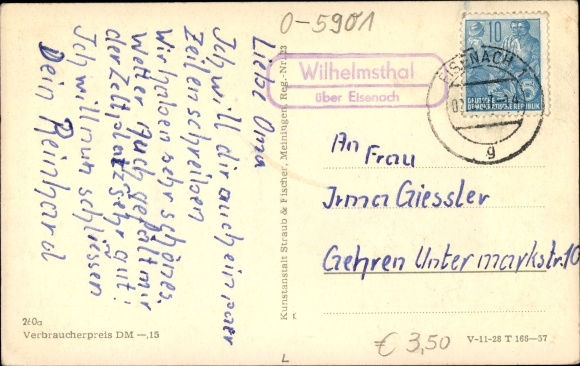 O-5901
Liebe Oma
Ich will dir auch ein paar
Zeilen schreiben
Wir haben sehr schönes
Wetter Auch gefällt mir
der Zeltplatz sehr gut!
Ich will nun schliessen
Dein Reinhard
Kunstanstalt Straub & Fischer, Meiningen, Reg.-Nr.
Wilhelmsthal
über Eisenach
10
DEUTSCHE
DEMOKRATISCHE REPUBLIK
EISENACH 1
g
An Frau
Irma Giessler
Gehren Untermarkstr. 10
260a
Verbraucherpreis DM —,15
L
€ 3,50
V-11-28 T 166—57